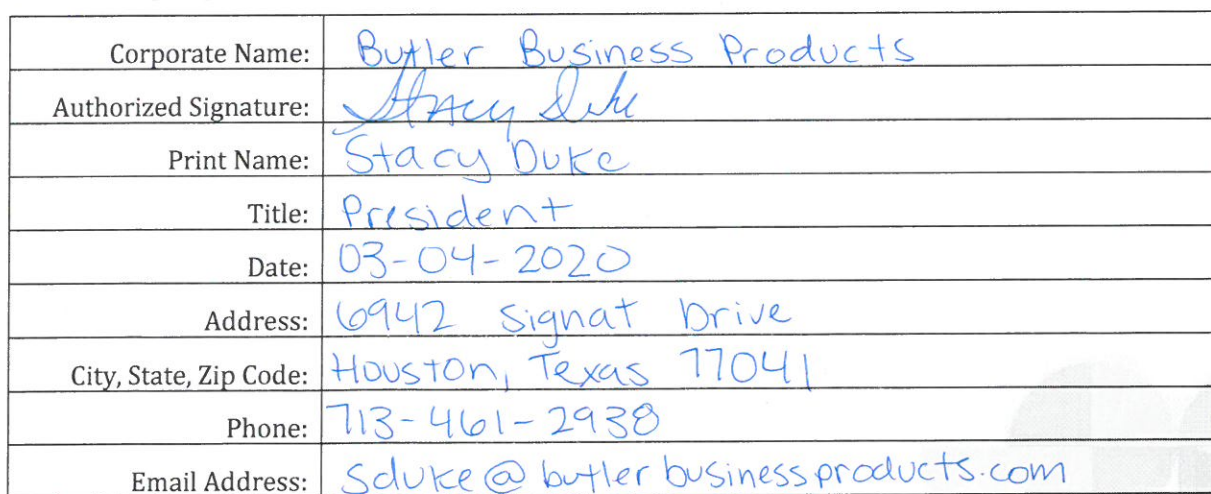 Corporate Name: Butler Business Products
Authorized Signature: Stacy Duke
Print Name: Stacy Duke
Title: President
Date: 03-04-2020
Address: 6942 Signat Drive
City, State, Zip Code: Houston, Texas 77041
Phone: 713-461-2938
Email Address: sduke@butlerbusinessproducts.com